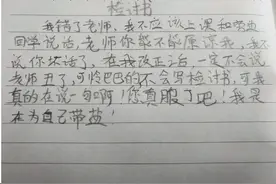 检讨书
我错了老师，我不应该上课和
同学说话，老师你能不能原谅我，我不
说你坏话了，在我改正之后，一定不会说
老师丑了，可怜巴巴的不会写检讨书，可我
真的在说一句啊！您真服了吧！我是
在为自己带盐！